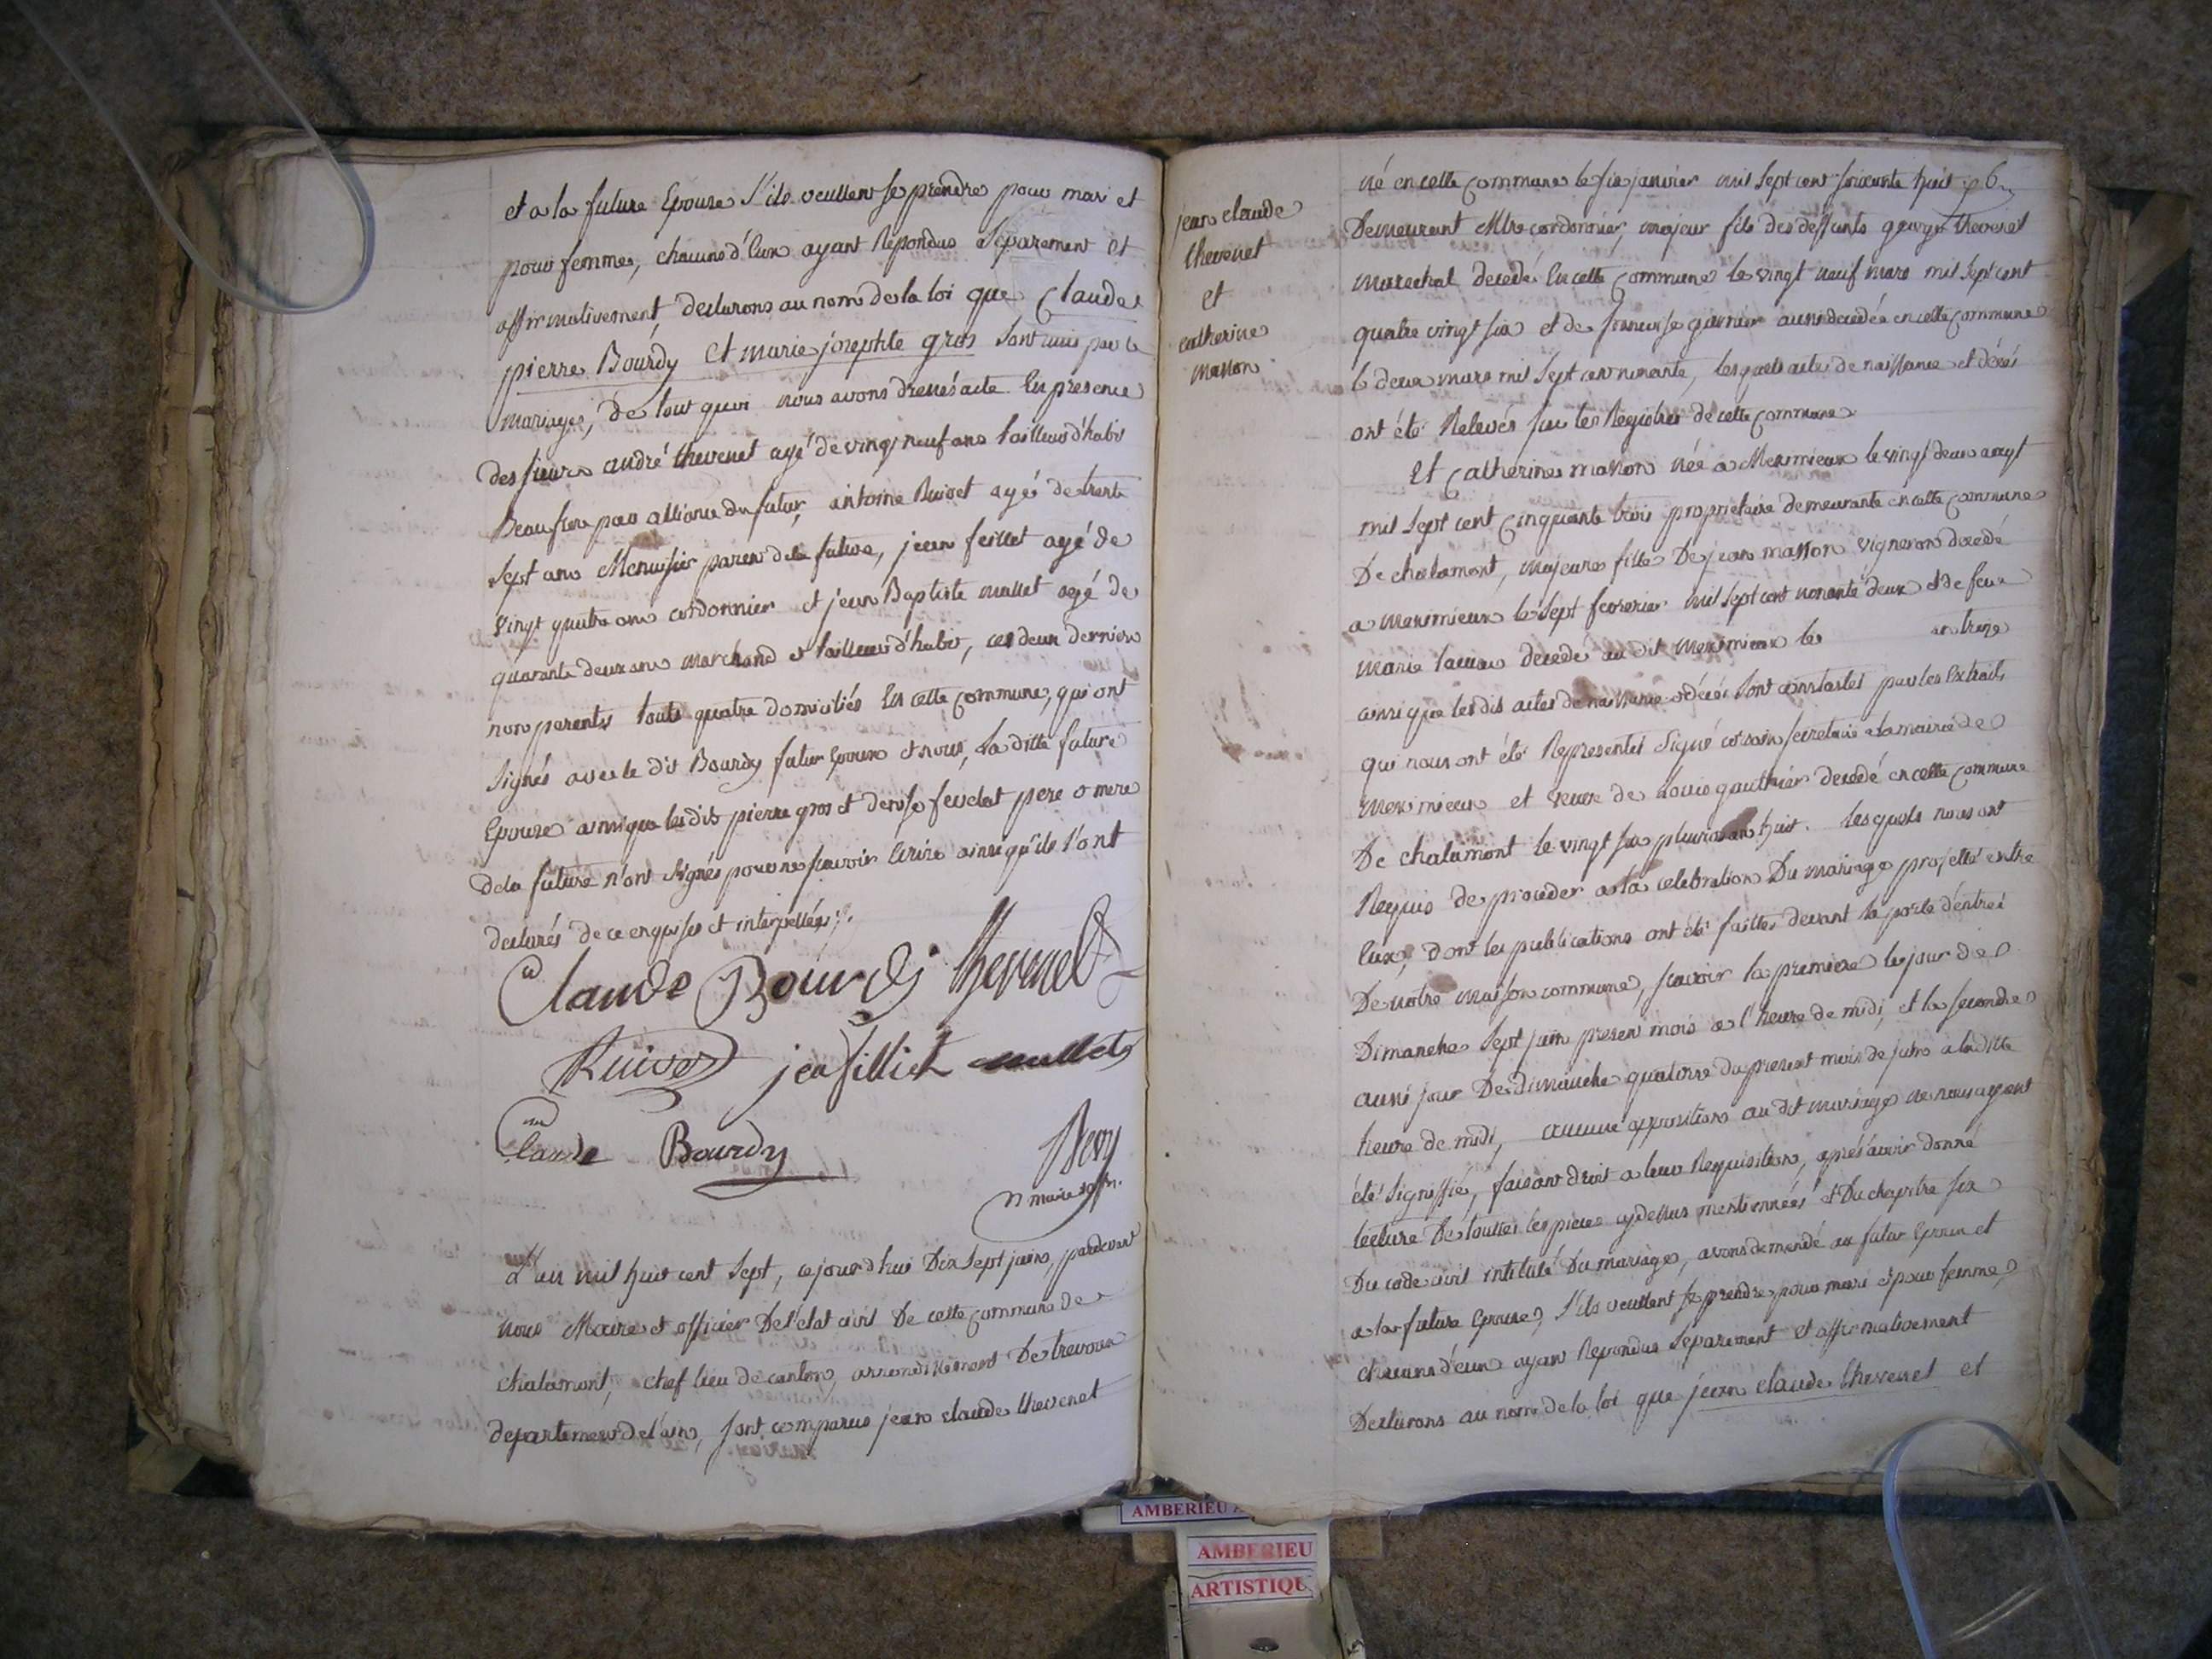 et a la future Epouse s'ils veullent se prendre pour mari et
pour femme, chacuns d'Eux ayant Repondus Séparement et
affirmativement, declarons au nom de la loi que Claude
pierre Bourdy Et marie josephte gros sont unis par le
mariage, De tout quoi nous avons dressés acte En presence
des sieurs andré thevenet agé de vingt neuf ans tailleur d'habit
Beaufrere par alliance du futur, antoine Ruivet agé de trente
sept ans Menuisier parent dela future, jean feillet agé de
vingt quatre ans cordonnier et jean Baptiste mallet agé de
quarante deux ans marchand et tailleur d'habit, ces deux derniers
non parents touts quatre domiciliés En cette commune, qui ont
signés avec le dit Bourdy futur Epoux et nous, la ditte future
Epouse ainsi que les dits pierre gros et denise pere et mere
dela future n'ont signés pour ne scavoir Ecrire ainsi qu'ils l'ont
declarés de ce enquises et interpellés ./.
Claude Bourdy thevenet
Ruivet jea filliet mallet
Claude Bourdy
maire
L'an mil huit cent sept, cejourd'hui Dix sept juin, pardevant
nous Maire et officier De l'état civil De cette commune de
chalamont, chef lieu de canton, arrondissement De trevoux
departement de l'ain, sont comparus jean claude thevenet
jean claude
thevenet
et
catherine
masson
né en cette commune le six janvier mil sept cent soixante huit 6
Demeurant Mtre cordonnier, majeur fils des deffunts george thevenet
marechal decedé En cette commune le vingt neuf mars mil sept cent
quatre vingt six et de francoise garnier aussi decedée en cette commune
le deux mars mil sept cent nonante, lesquels actes de naissance et décés
ont été Relevés sur les Registres de cette commune
Et Catherine masson née a Meximieux le vingt deux aoust
mil sept cent cinquante trois propriétaire demeurante en cette commune
De chalamont, majeure fille De jean masson vigneron decedé
a meximieux le sept fevrier mil sept cent nonante deux et de feue
marie decedé au dit meximieux le an treize
ainsi que les dits actes de naissance et décés sont constatés par les Extraits
qui nous ont été Representés signé secretaire a la mairie de
meximieux et veuve de Louis gauthier decedé en cette commune
De chalamont le vingt six pluviose an huit. lesquels nous ont
Requis de proceder a la celebration Du mariage projetté entre
Eux, dont les publications ont été faittes devant la porte d'entrée
De notre maison commune, scavoir la premiere le jour de
Dimanche sept juin present mois a l'heure de midi, et la seconde
aussi jour De dimanche quatorze du present mois de juin a la ditte
heure de midi, aucune opposition au dit mariage ne nous ayant
été signiffié, faisant droit a leur Requisition, après avoir donné
lecture De touttes les pieces cydessus mentionnées et Du chapitre six
Du code civil intitulé Du mariage, avons demandé au futur Epoux et
a la future Epouse, s'ils veullent se prendre pour mari et pour femme,
chacuns d'eux ayant Repondus Séparement et affirmativement
Declarons au nom de la loi que jean claude thevenet et
AMBERIEU
AMBERIEU
ARTISTIQU